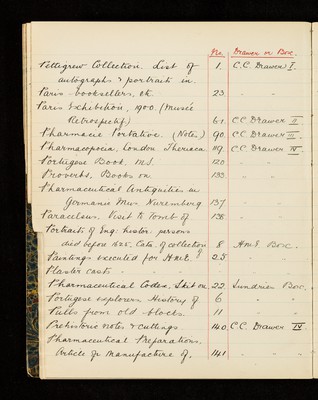 No. Drawer or Box.
Pettigrew Collection. List of 1. C.C. Drawer I.
autographs & portraits in
Paris booksellers, etc. 23 " "
Paris Exhibition, 1900. (Musée
Retrospectif) 61 C.C. Drawer II
Pharmacie Portative. (Notes) 90. C.C. Drawer III
Pharmacopoeia, London Theriaca. 119. C.C. Drawer IV
Portugese Book. M.S. 120 " "
Proverbs. Books on 133 " "
Pharmaceutical Antiquities in
Germanic Mus. Nuremburg 137 " "
Paracelsus. Visit to Tomb of 138 " "
Portraits of Eng. histor. persons
died before 1625. Cata. of collection 8 Box.
Paintings executed for 25 "
Plaster casts " "
Pharmaceutical Codex, Skit on 22. Sundries Box.
Portugese explorers History of 6 " "
Pulls from old blocks 11 " "
Prehistoric notes & cuttings 140. C.C. Drawer IV
Pharmaceutical Preparations.
Article on manufacture of. 141 " " "